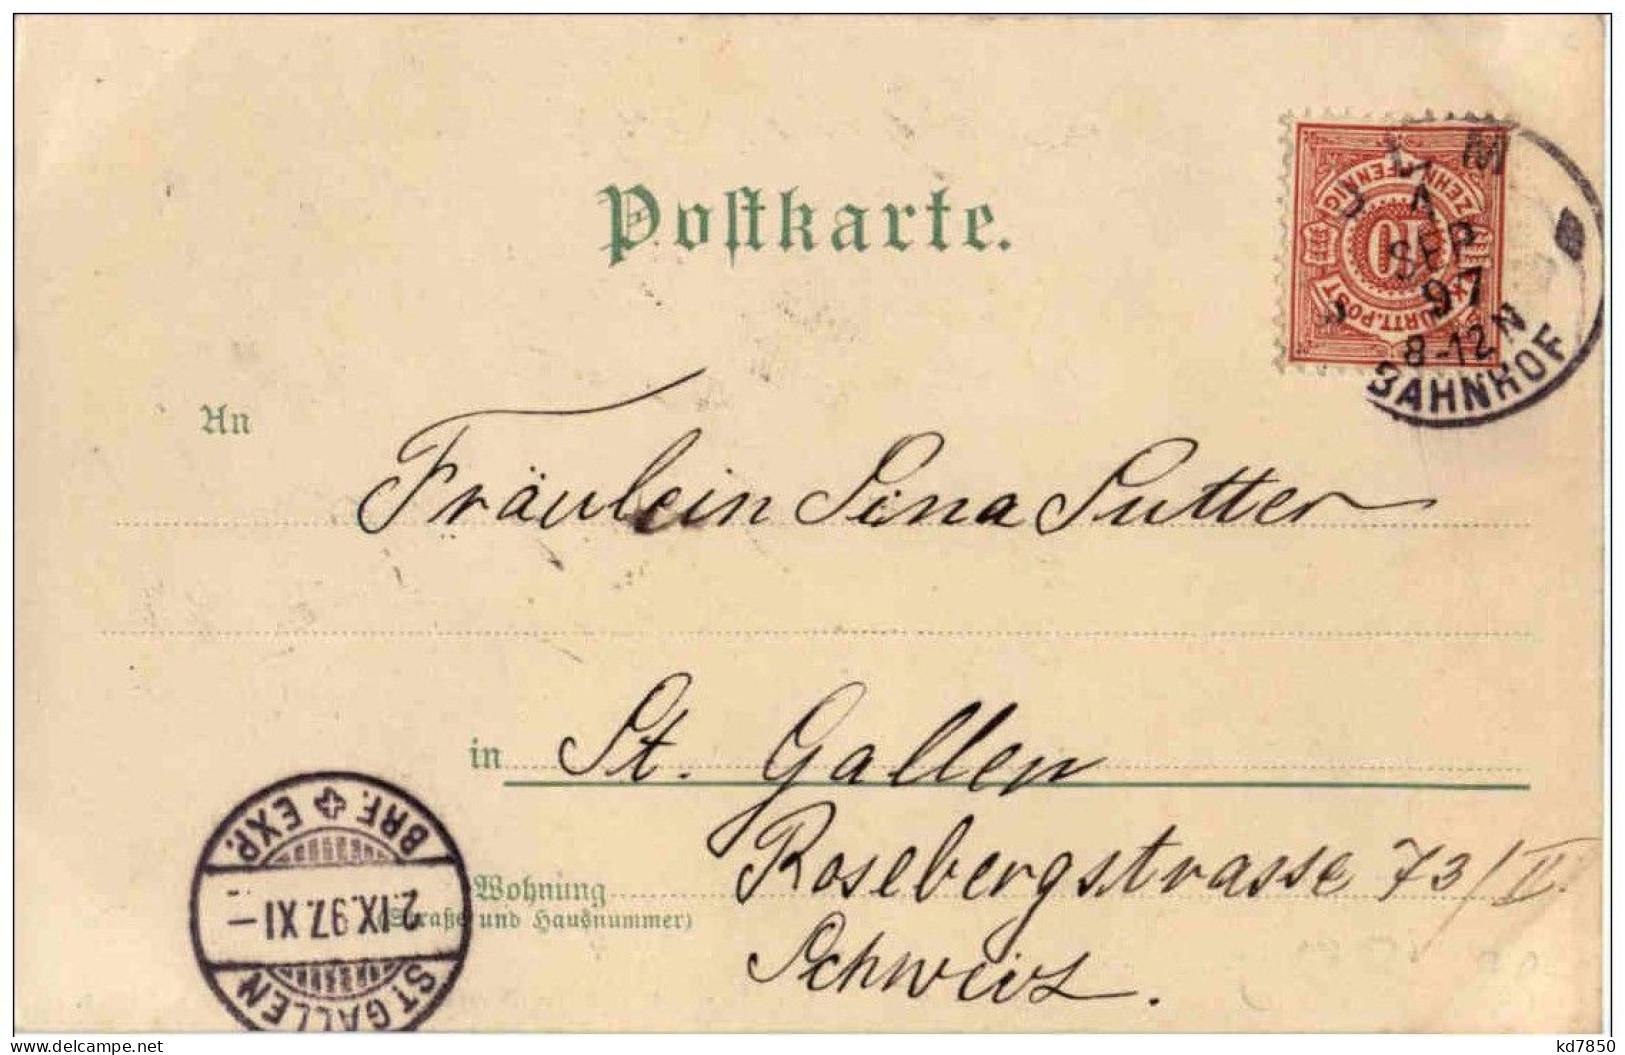 Postkarte.
ZEHN PFENNIG
10
K. WÜRTT. POST
ULM
1
SEP
97
8-12 N
BAHNHOF
An
Fräulein Lina Sutter
in St. Gallen
Wohnung Rosebergstrasse 73/II.
(Straße und Hausnummer)
Schweiz.
BRF. EXP.
2.IX.97.XI-
ST. GALLEN
www.delcampe.net
kd7850